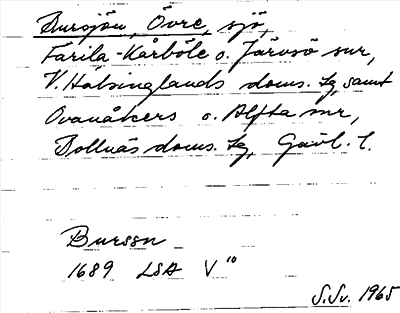 Bursjön, Övre, sjö,
Färila-Kårböle o. Järvsö snr,
V. Hälsinglands doms. tg, samt
Ovanåkers o. Alfta snr,
Bollnäs doms. tg, Gävl. l.
Burssn
1689 LSA V 10
S.Sv. 1965